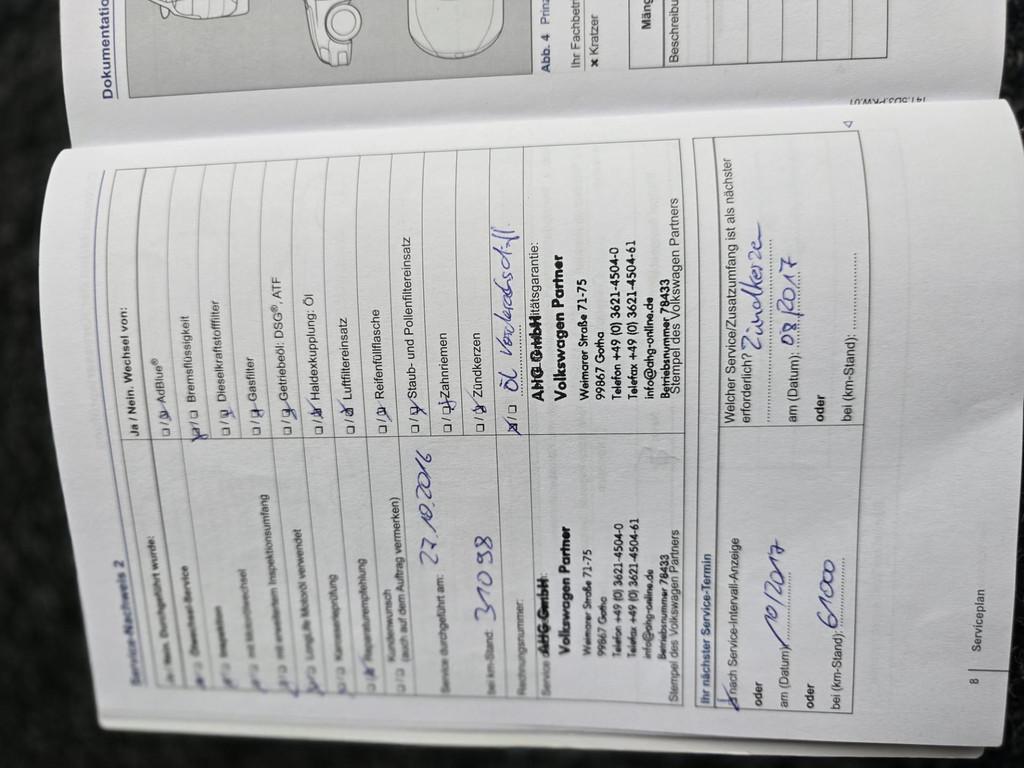 Dokumentatio
Abb. 4 Prinz
Ihr Fachbetr
× Kratzer
Mäng
Beschreibu
Service-Nachweis 2
Ja / Nein. Durchgeführt wurde:
Ölwechsel-Service
Inspektion
mit Motorölwechsel
mit erweitertem Inspektionsumfang
LongLife Motoröl verwendet
Karosserieprüfung
Reparaturempfehlung
Kundenwunsch
(auch auf dem Auftrag vermerken)
Service durchgeführt am: 27.10.2016
bei km-Stand: 31098
Rechnungsnummer:
AHG GmbH
Volkswagen Partner
Weimarer Straße 71-75
99867 Gotha
Telefon +49 (0) 3621-4504-0
Telefax +49 (0) 3621-4504-61
info@ahg-online.de
Betriebsnummer 78433
Stempel des Volkswagen Partners
Ja / Nein. Wechsel von:
AdBlue®
Bremsflüssigkeit
Dieselkraftstofffilter
Gasfilter
Getriebeöl: DSG®, ATF
Haldexkupplung: Öl
Luftfiltereinsatz
Reifenfüllflasche
Staub- und Pollenfiltereinsatz
Zahnriemen
Zündkerzen
Öl Vorderachsdiff.
AHG GmbH itätsgarantie:
Volkswagen Partner
Weimarer Straße 71-75
99867 Gotha
Telefon +49 (0) 3621-4504-0
Telefax +49 (0) 3621-4504-61
info@ahg-online.de
Betriebsnummer 78433
Stempel des Volkswagen Partners
Ihr nächster Service-Termin
nach Service-Intervall-Anzeige
oder
am (Datum): 10/2017
oder
bei (km-Stand): 61000
Welcher Service/Zusatzumfang ist als nächster
erforderlich? Zündkerzen
am (Datum): 08/2017
oder
bei (km-Stand):
8 Serviceplan